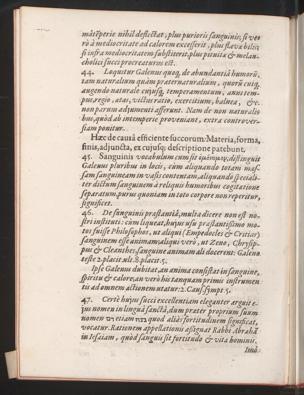 mātēperie nihil destestat; plus purioris sanguinis; si verò
à mediocritate ad calorem excesserit, plus flava bilis:
si infra mediocritatem substiterit, plus pituita & melancholici
succi procreaturos est.
44. Loquitur Galenus quoq; de abundantiâ humorũ,
tam naturalium quàm præternaturalium, quorũ cuiq;
augendo naturale cujusq; temperamentum, anni tempus,
regio, ætas, victus ratio, exercitium, balnea, &c.
non parum adjumenti afferunt. Nam de non naturalibus,
quòd ab intemperie proveniant, extra controversiam
ponitur.
Hæc de causâ efficiente succorum: Materia, forma,
finis, adjuncta, ex cujusq; descriptione patebunt.
45. Sanguinis vocabulum cùm sit ὁμώνυμος, distinguit
Galenus pluribus in locis, cùm aliquando totam massam
sanguineam in vasis contentam, aliquando specialiter
dictum sanguinem à reliquis humoribus cogitatione
separatum, purus quoniam in toto corpore non reperitur,
significet.
46. De sanguinis præstantiâ, multa dicere non est nostri
instituti: cùm liqueat, hujus usu præstantissimo motos
fuisse Philosophos, ut aliqui (Empedocles & Critias)
sanguinem esse animam; aliqui verò, ut Zeno, Chrysippus
& Cleanthes, sanguine animam ali docerent: Galeno
teste 2. placit. ult. 8. placit. 5.
Ipse Galenus dubitat, an anima consistat in sanguine,
spiritu & calore, an verò his tanquam primis instrumentis
ad omnem actionem utatur: 2. Caus. sympt. 5.
47. Certè hujus succi excellentiam eleganter arguit ejus
nomen in linguâ sanctâ, dum præter proprium suum
nomen etiam quod aliàs fortitudinem significat,
vocatur. Rationem appellationis assignat Rabbi Abrahã
in Iesaiam, quòd sanguis sit fortitudo & vita hominis.
Imò